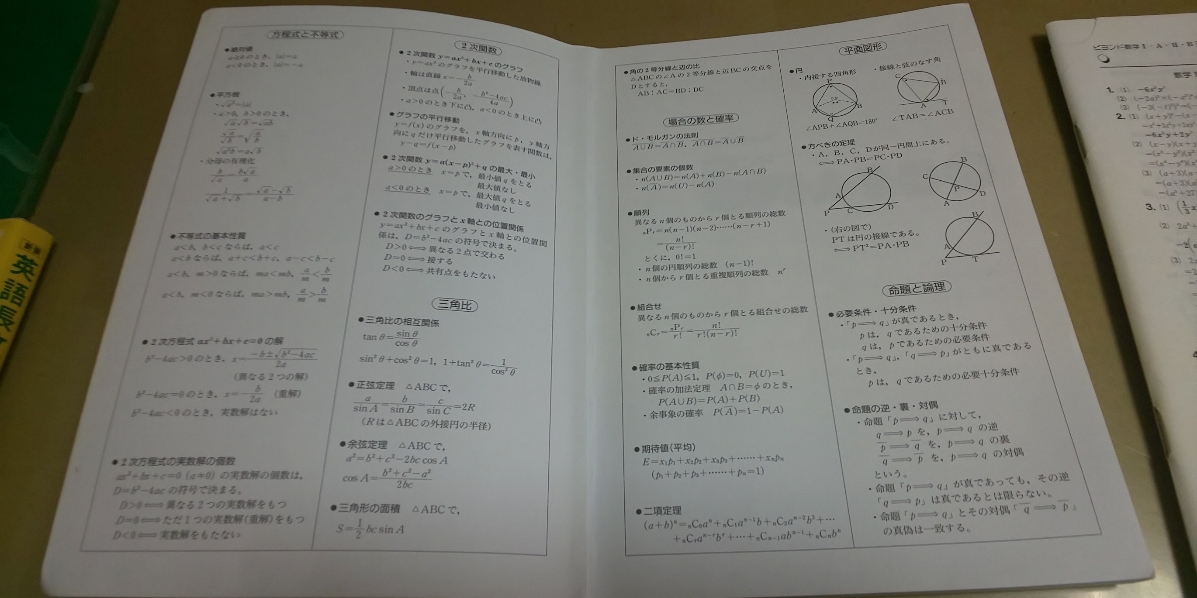 方程式と不等式
●絶対値
a≧0のとき, |a|=a
a<0のとき, |a|=−a
●平方根
・√a²=|a|
・a>0, b>0のとき,
√a√b=√ab
√a/√b=√(a/b)
√a²b=a√b
・分母の有理化
b/√a=b√a/a
1/(√a+√b)=(√a−√b)/(a−b)
●不等式の基本性質
a<b, b<cならば, a<c
a<bならば, a+c<b+c, a−c<b−c
a<b, m>0ならば, ma<mb, a/m<b/m
a<b, m<0ならば, ma>mb, a/m>b/m
●2次方程式 ax²+bx+c=0 の解
b²−4ac>0のとき, x=(−b±√(b²−4ac))/2a
(異なる2つの解)
b²−4ac=0のとき, x=−b/2a (重解)
b²−4ac<0のとき, 実数解はない
●2次方程式の実数解の個数
ax²+bx+c=0 (a≠0) の実数解の個数は,
D=b²−4ac の符号で決まる。
D>0⟺異なる2つの実数解をもつ
D=0⟺ただ1つの実数解(重解)をもつ
D<0⟺実数解をもたない
2次関数
●2次関数 y=ax²+bx+c のグラフ
・y=ax²のグラフを平行移動した放物線
・軸は直線 x=−b/2a
・頂点は点(−b/2a, −(b²−4ac)/4a)
・a>0のとき下に凸, a<0のとき上に凸
●グラフの平行移動
y=f(x)のグラフを, x軸方向にp, y軸方
向にqだけ平行移動したグラフを表す関数は,
y−q=f(x−p)
●2次関数 y=a(x−p)²+q の最大・最小
a>0のとき x=pで, 最小値qをとる
最大値なし
a<0のとき x=pで, 最大値qをとる
最小値なし
●2次関数のグラフとx軸との位置関係
y=ax²+bx+cのグラフとx軸との位置関
係は, D=b²−4ac の符号で決まる。
D>0⟺異なる2点で交わる
D=0⟺接する
D<0⟺共有点をもたない
三角比
●三角比の相互関係
tanθ=sinθ/cosθ
sin²θ+cos²θ=1, 1+tan²θ=1/cos²θ
●正弦定理 △ABCで,
a/sinA=b/sinB=c/sinC=2R
(Rは△ABCの外接円の半径)
●余弦定理 △ABCで,
a²=b²+c²−2bc cosA
cosA=(b²+c²−a²)/2bc
●三角形の面積 △ABCで,
S=1/2 bc sinA
●角の2等分線と辺の比
△ABCの∠Aの2等分線と辺BCの交点を
Dとすると,
AB:AC=BD:DC
場合の数と確率
●ド・モルガンの法則
A̅∪̅B̅=A̅∩B̅, A̅∩̅B̅=A̅∪B̅
●集合の要素の個数
・n(A∪B)=n(A)+n(B)−n(A∩B)
・n(A̅)=n(U)−n(A)
●順列
異なるn個のものからr個とる順列の総数
ₙPᵣ=n(n−1)(n−2)……(n−r+1)
=n!/(n−r)!
とくに, 0!=1
・n個の円順列の総数 (n−1)!
・n個からr個とる重複順列の総数 nʳ
●組合せ
異なるn個のものからr個とる組合せの総数
ₙCᵣ=ₙPᵣ/r!=n!/r!(n−r)!
●確率の基本性質
・0≦P(A)≦1, P(φ)=0, P(U)=1
・確率の加法定理 A∩B=φのとき,
P(A∪B)=P(A)+P(B)
・余事象の確率 P(A̅)=1−P(A)
●期待値(平均)
E=x₁p₁+x₂p₂+x₃p₃+……+xₙpₙ
(p₁+p₂+p₃+……+pₙ=1)
●二項定理
(a+b)ⁿ=ₙC₀aⁿ+ₙC₁aⁿ⁻¹b+ₙC₂aⁿ⁻²b²+…
+ₙCᵣaⁿ⁻ʳbʳ+…+ₙCₙ₋₁abⁿ⁻¹+ₙCₙbⁿ
平面図形
●円
・内接する四角形
・接線と弦のなす角
P
A
B
Q
∠APB+∠AQB=180°
C
B
A
T
∠TAB=∠ACB
●方べきの定理
・A, B, C, Dが同一円周上にある。
⟺PA・PB=PC・PD
B
A
P
C
D
B
C
P
A
D
・(右の図で)
PTは円の接線である。
⟺PT²=PA・PB
B
A
P
T
命題と論理
●必要条件・十分条件
・「p⟹q」が真であるとき,
pは, qであるための十分条件
qは, pであるための必要条件
・「p⟹q」,「q⟹p」がともに真である
とき,
pは, qであるための必要十分条件
●命題の逆・裏・対偶
・命題「p⟹q」に対して,
q⟹p を, p⟹q の逆
p̅⟹q̅ を, p⟹q の裏
q̅⟹p̅ を, p⟹q の対偶
という。
・命題「p⟹q」が真であっても, その逆
「q⟹p」は真であるとは限らない。
・命題「p⟹q」とその対偶「q̅⟹p̅」
の真偽は一致する。
英語長
1.
(1)
(2)
2.
(1)
(2)
(3)
3.
(1)
(2)
(3)